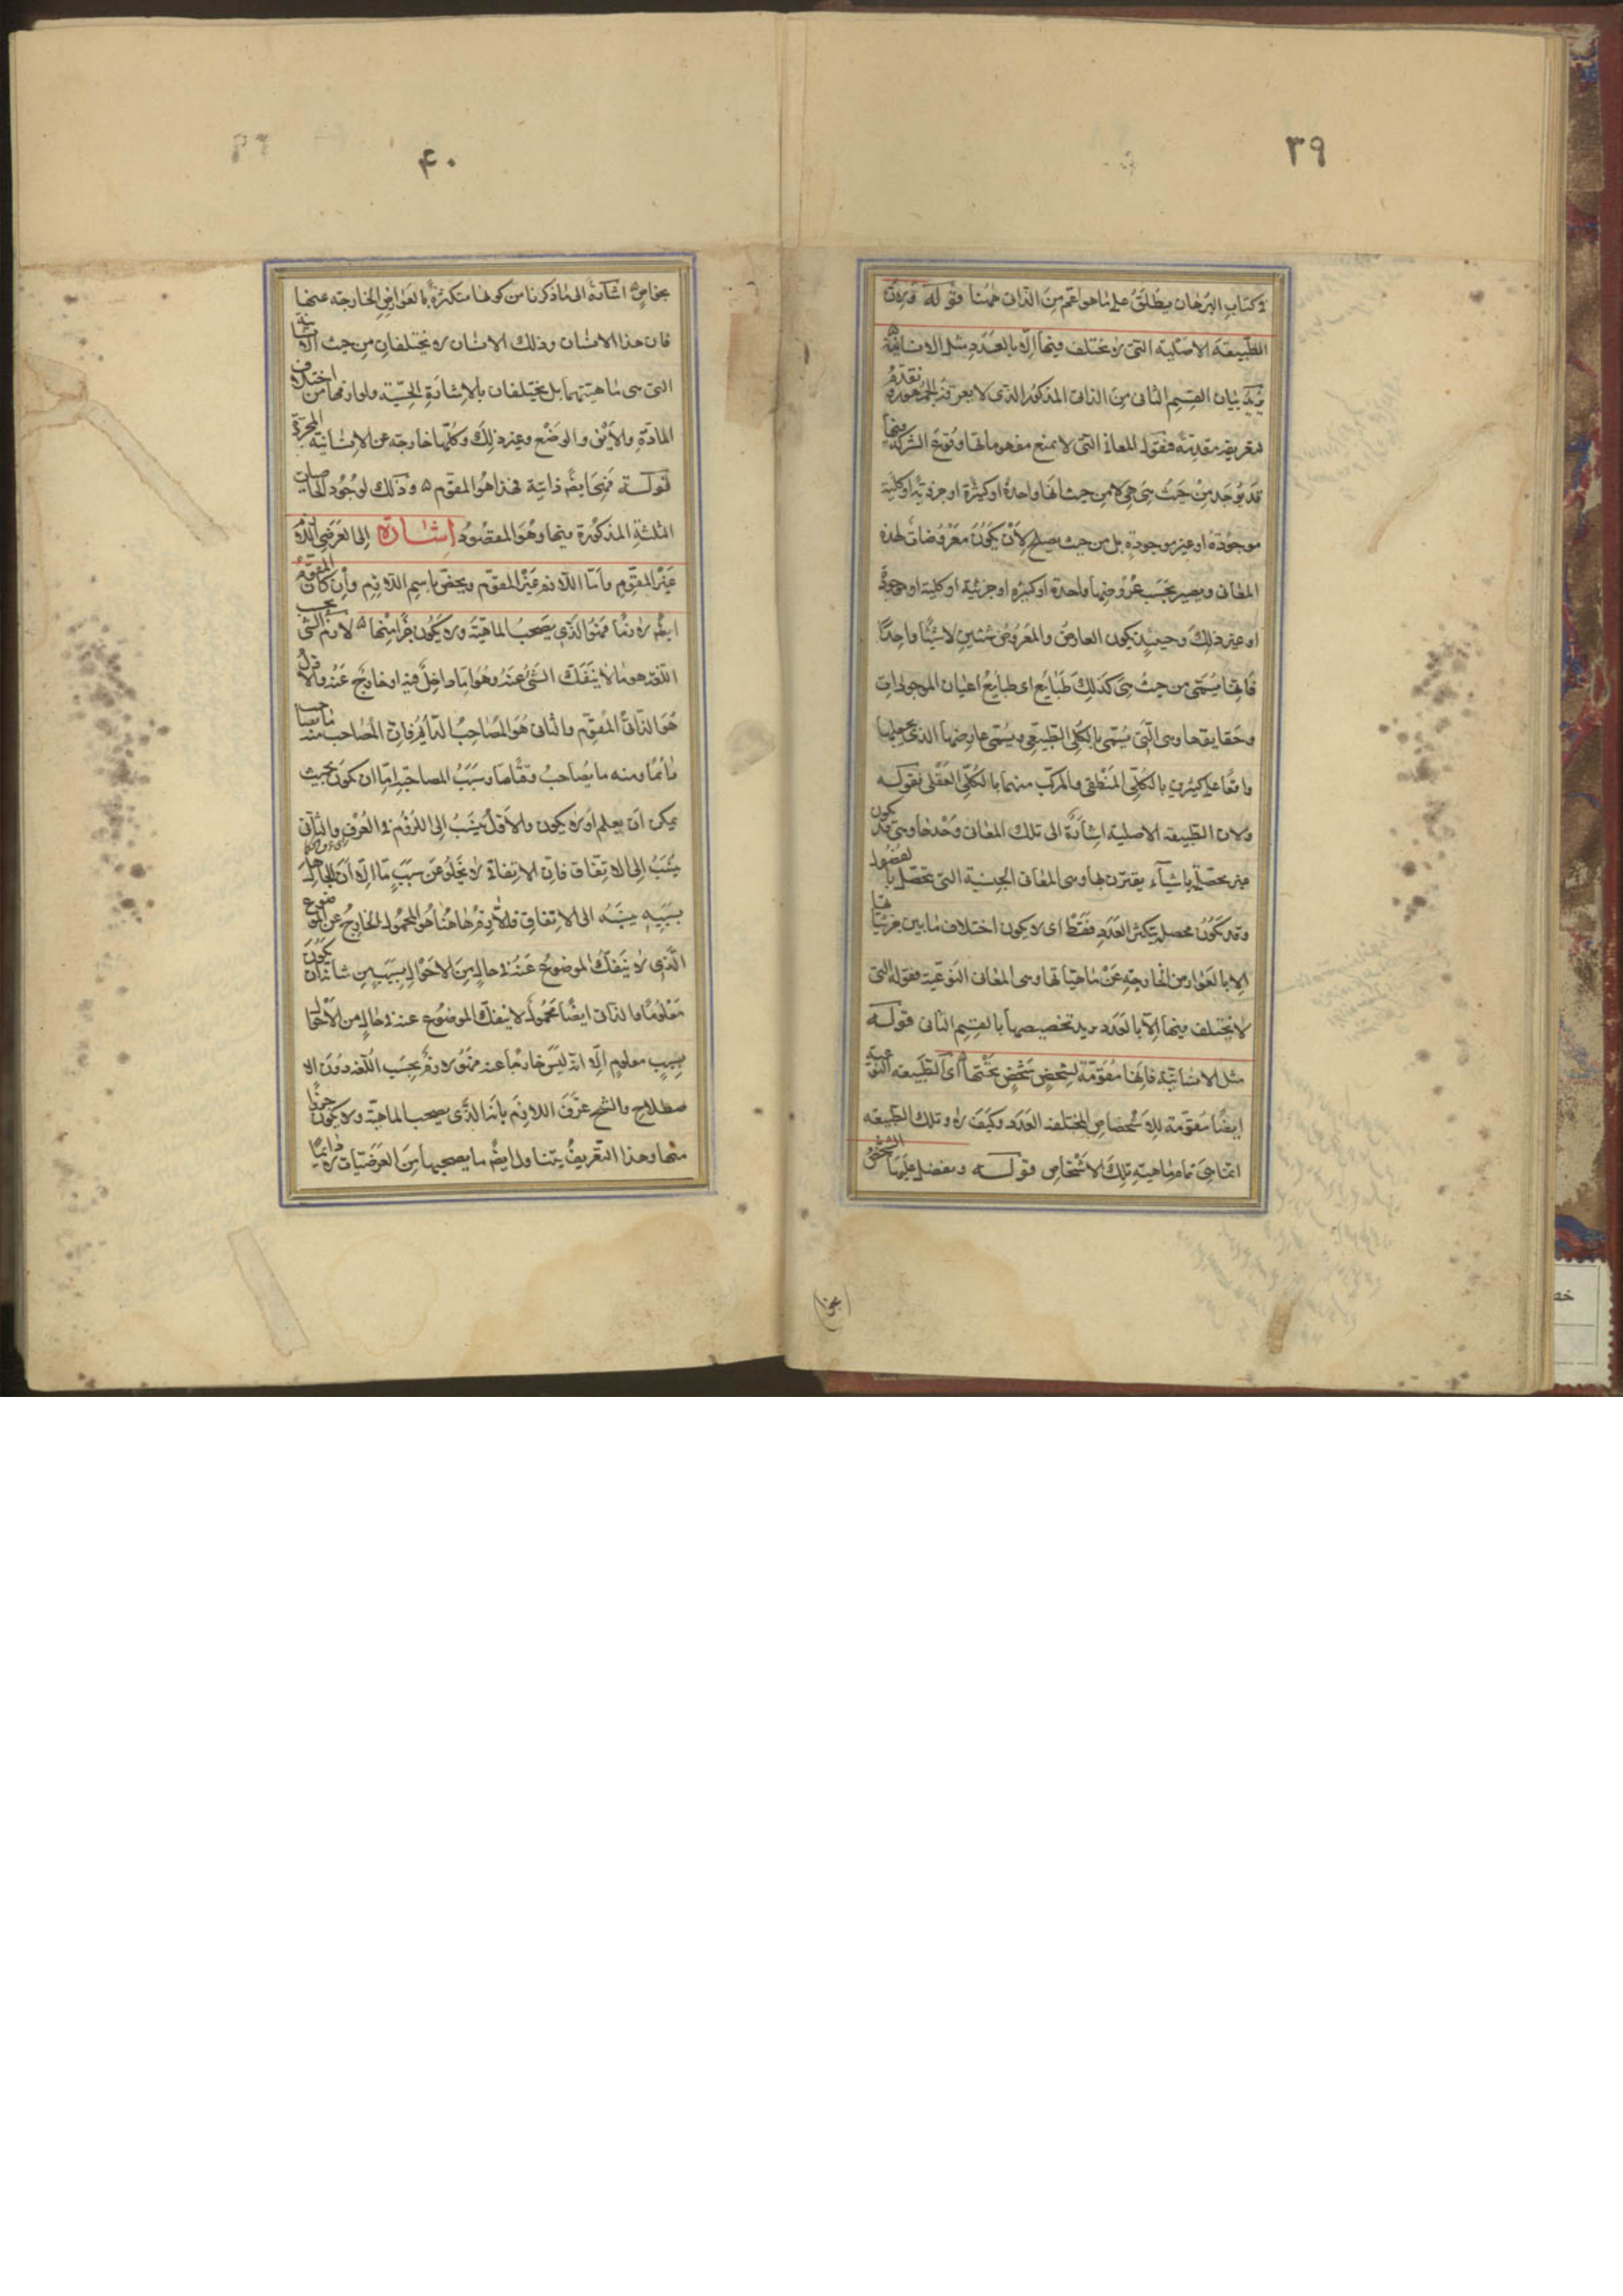 ٣٩
فى كتاب البرهان يطلق على ما هو اعم من الذاتى ههنا قوله فربت
الطبيعة الاصلية التى لا يختلف فيها الا بالعدد مثل الانسانية ه
يريد بيان القسم الثانى من الذاتى المذكور الذى لا يعرفه الجمهور و
لتعريفه مقدمة فنقول المعانى التى لا يمنع مفهوماتها وقوع الشركة فيها
قد يوجد من حيث هى هى لا من حيث انها واحدة او كثيرة او جزئية او كلية
موجودة او غير موجودة بل من حيث يصلح لان يكون معروضات لهذه
المعانى ويصير بحسب عروضها واحدة او كثيرة او جزئية او كلية او موجودة
او غير ذلك وحينئذ يكون العارض والمعروض شيئين لا شيئا واحدا
فانها يسمى من حيث هى كذلك طبايع اى طبايع اعيان الموجودات
وحقايقها وهى التى يسمى بالكلى الطبيعى ويسمى عارضها الذى يجعلها
واقعا على كثيرين بالكلى المنطقى والمركب منهما بالكلى العقلى فقوله
ولان الطبيعة الاصلية اشارة الى تلك المعانى وحدها وهى قد يكون
غير محصلة باشياء يقترن بها وهى المعانى الجنسية التى تحصل بالفصول
وقد يكون محصل يتكثر العدد فقط اى لا يكون اختلاف ما بين جزئياتها
الا بالعوارض الخارجة عن ماهياتها وهى المعانى النوعية فقوله التى
لا يختلف فيها الا بالعدد يريد تخصيصها بالقسم الثانى قوله
مثل الانسانية فانها مقومة لشخص شخص تحتها اى الطبيعة النوعية
ايضا مقومة للاشخاص المختلفة العدد وكيف لا وتلك الطبيعة
انما هى تمام ماهية تلك الاشخاص قوله ويفضل عليها الشخص
بخواص
٤٠
بخواص اشارة الى ما ذكرنا من كونها متكثرة بالعوارض الخارجة عنها
فان هذا الانسان وذلك الانسان لا يختلفان من حيث الانسانية
التى هى ماهيتهما بل يختلفان بالاشارة الحسية ولوازمها من اختلاف
المادة والاين والوضع وغير ذلك وكلها خارجة عن الانسانية المجردة
قوله فهى ايضا ذاتية فهذا هو المقوم ه وذلك لوجود الخاصيات
الثلثة المذكورة فيها وهو المقصود اشارة الى العرضى اللازم
غير المقوم واما اللازم غير المقوم ويخص باسم اللازم وان كان المقوم
ايضا لازما فهو الذى يصحب الماهية ولا يكون جزا منها ه لازم الشئ بحسب
اللغة هو ما لا ينفك الشئ عنه وهو اما داخل فيه او خارج عنه والاول
هو الذاتى المقوم والثانى هو المصاحب الدايم فان المصاحب منه ما يصاحب
دائما ومنه ما يصاحب وقتا ما وسبب المصاحبة اما ان يكون بحيث
يمكن ان يعلم او لا يكون والاول ينسب الى اللزوم فى العرف والثانى
ينسب الى الاتفاق فان الاتفاق لا يخلو عن سبب ما الا ان الجاهل
بسببه ينسبه الى الاتفاق فاللازم هاهنا هو المحمول الخارج عن الموضوع
الذى لا ينفك الموضوع عنه فى حال من الاحوال بسبب من شانه ان يكون
معلوما والذاتى ايضا محمول لا ينفك الموضوع عنه فى حال من الاحوال
بسبب معلوم الا انه ليس خارجا عنه فهو لازم بحسب اللغة دون الا
صطلاح والشيخ عرف اللازم بانه الذى يصحب الماهية ولا يكون جزءا
منها وهذا التعريف يتناول ايضا ما يصحبها من العرضيات لا دائما